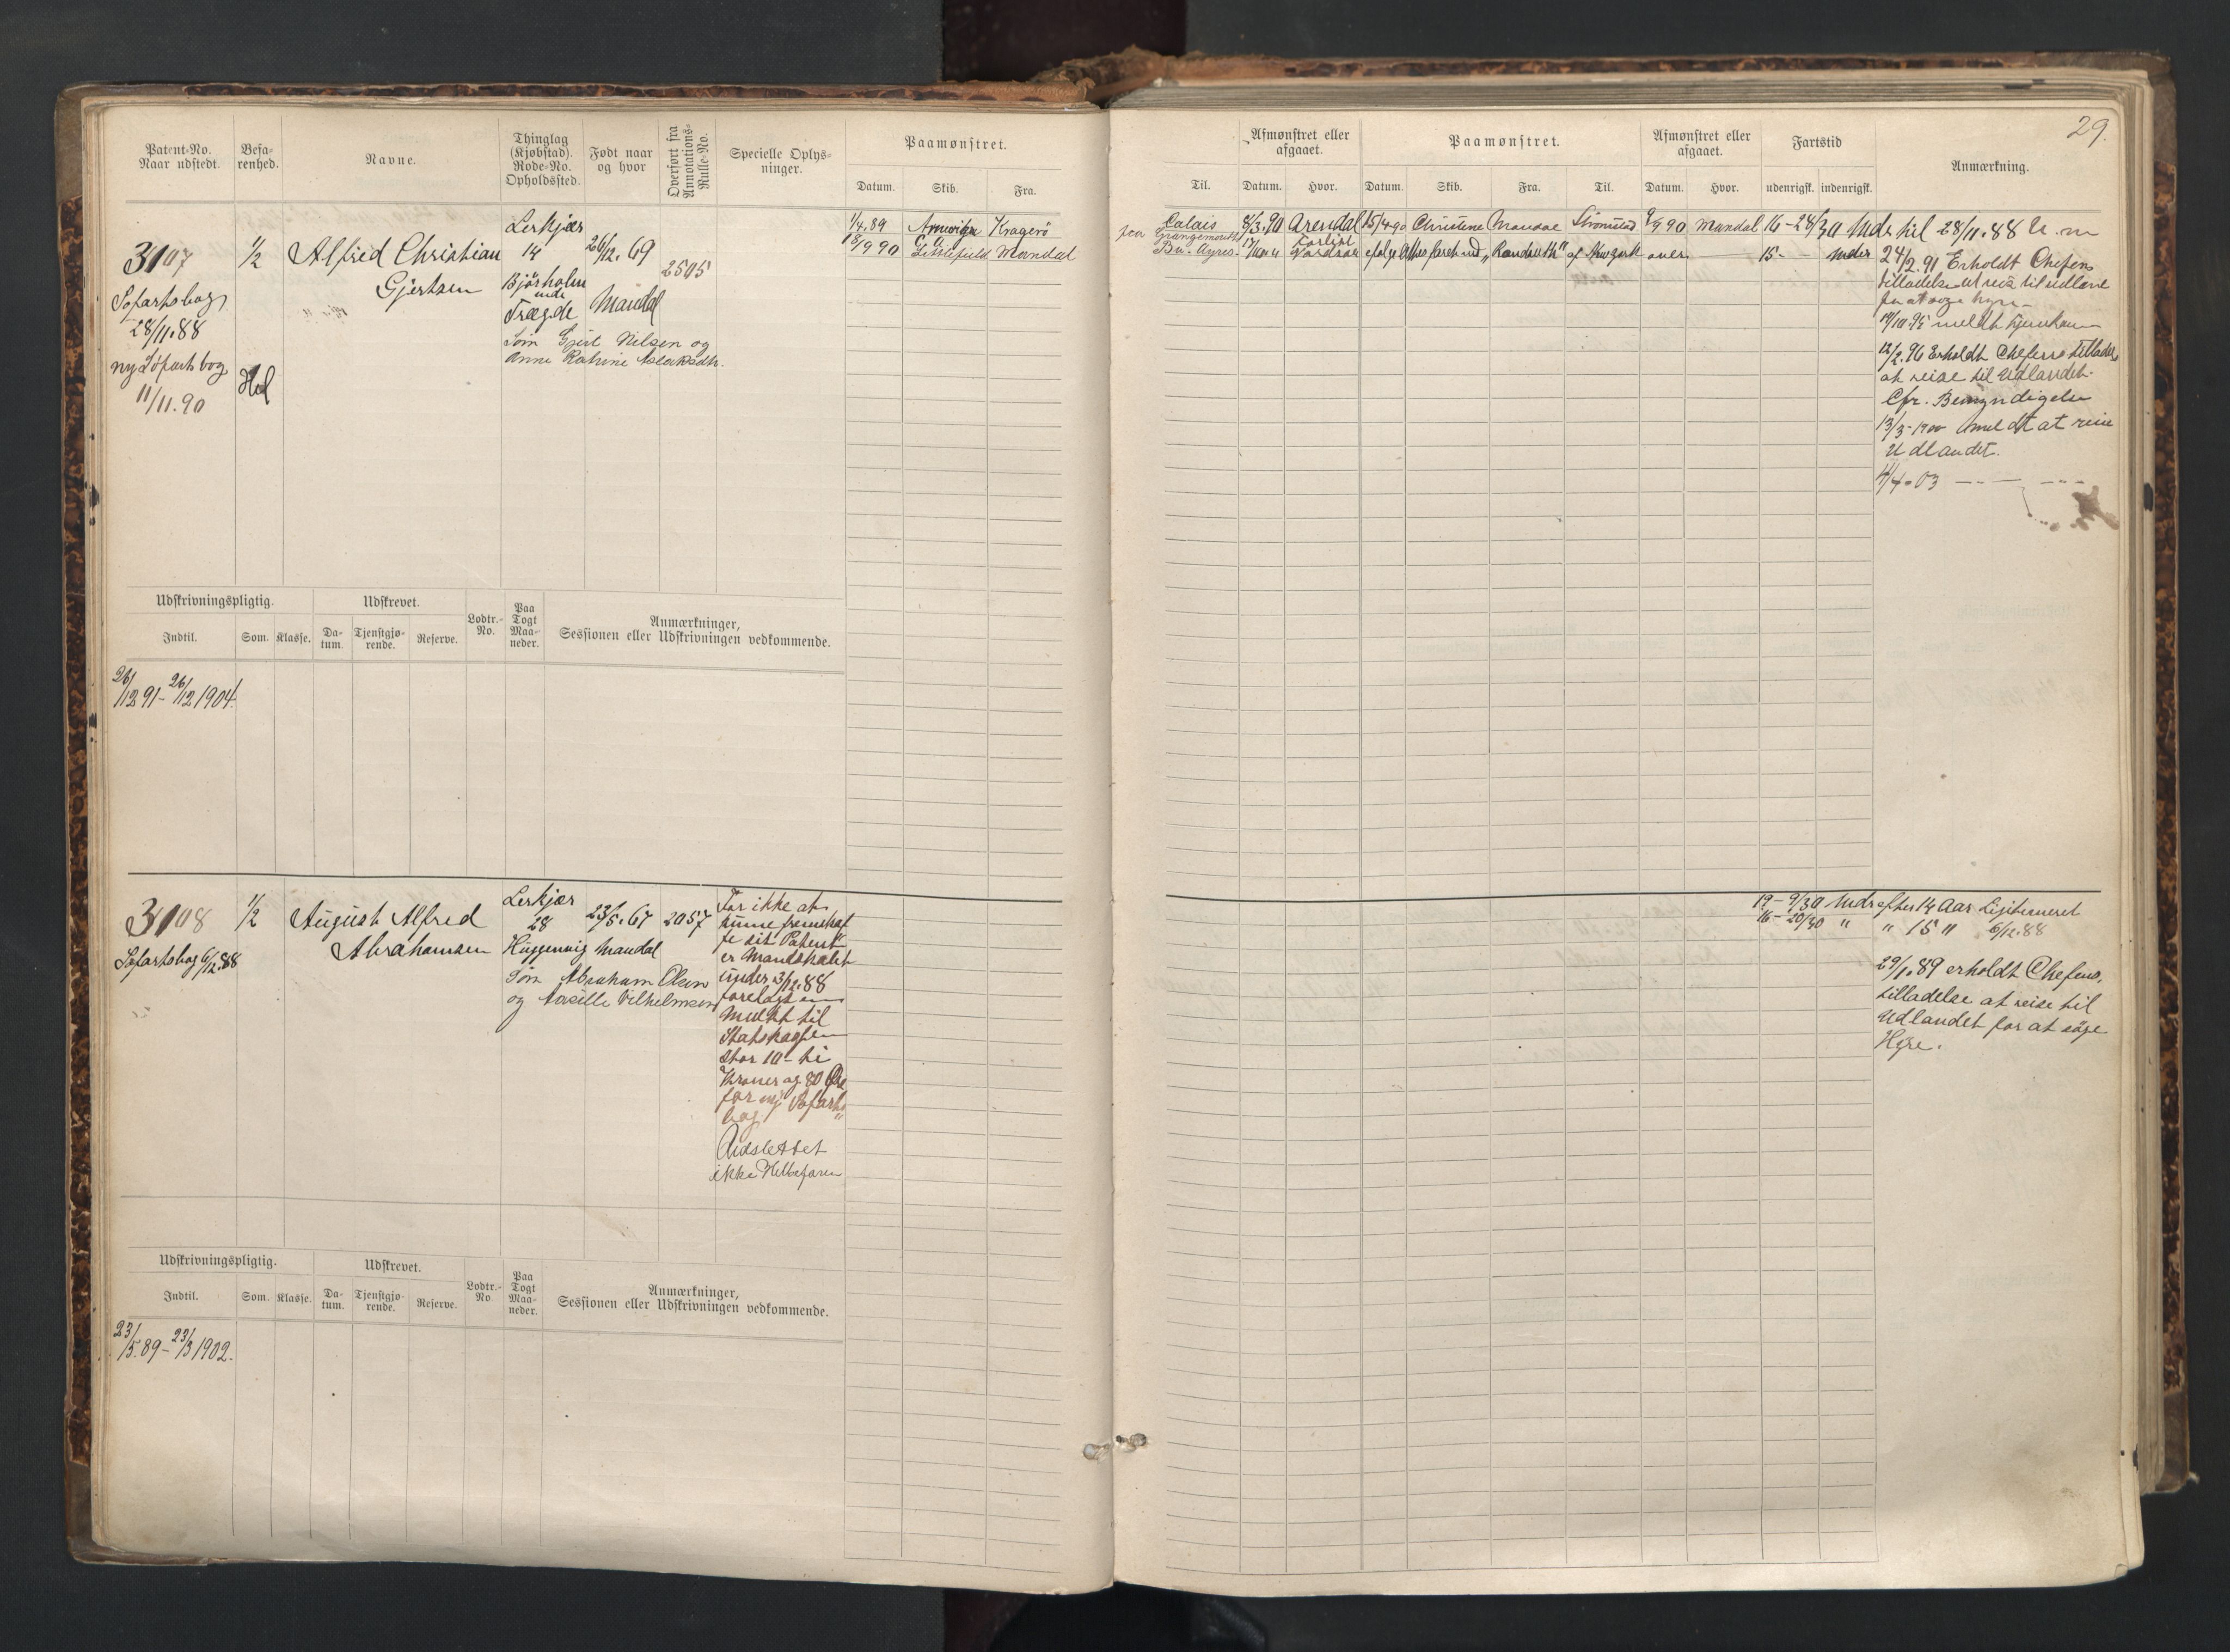 29.
Patent-No.
Naar udstedt.
Besa-
renhed.
Navne.
Thinglag
(Kjøbstad).
Rode-No.
Opholdssted.
Født naar
og hvor
Overført fra
Annotations-
Rulle-No.
Specielle Oplys-
ninger.
Paamønstret.
Datum.
Skib.
Fra.
Til.
Afmønstret eller
afgaaet.
Datum.
Hvor.
Paamønstret.
Datum.
Skib.
Fra.
Til.
Afmønstret eller
afgaaet.
Datum.
Hvor.
Fartstid
udenrigsk.
indenrigsk.
Anmærkning.
3107
Søfartsbog
28/11.88
ny Søfartsbog
11/11.90
1/2
Hel
Alfred Christian
Gjertsen
Lerkjær
14
Bjørholm
Trægde
26/12.69
Mandal
2505
Søn Gjert Nilsen og
Anne Katrine Aslaksdtr.
1/4.89
Kragerø
18/9 90
Littlefield Mandal
Calais
8/3.90 Arendal
Grangemouth
Bu. Ayres.
Forlist
15/4 90 Christine Mandal Strømstad
9/9 90 Mandal 16-24/30 Mdr til 28/11.88
15 - Mdr
24/2.91 Erholdt Chefens
tilladelse at reise til udland
for at søge hyre
19/10.95 meldt hjemkom
12/2.96 Erholdt Chefens tillad
at reise til Udlandet.
Cfr. Bemyndigelse
13/3-1900 Anmeldt at reise
Udlandet.
4/4-03 - " - - " -
Udskrivningspligtig.
Indtil.
Som.
Klasse.
Udskrevet.
Da-
tum.
Tjenstgjø-
rende.
Reserve.
Lodtr.-
No.
Paa
Togt
Maa-
neder.
Anmærkninger,
Sessionen eller Udskrivningen vedkommende.
26/12 91 - 26/12 1904.
3108
Søfartsbog 6/12.88
1/2
August Alfred
Abrahamsen
Lerkjær
28
Huggenvig
23/5.67
Mandal
2057
Søn Abraham Olsen
og Vilhelmsen
For ikke at
kunne fremskaf
fe sit Patent
er Mandskabet
under 3/12.88
forelagt en
Mulkt til
Statskassen
stor 10 - ti
Kroner og 80 Øre
for ny Søfarts
bog
Aidslettet
ikke Helbefaren
19 - 9/30 Mdr efter 14 Aar Legitimeret
16 - 20/30 " " 15 " 6/12.88
29/1.89 erholdt Chefens
tilladelse at reise til
Udlandet for at søge
Hyre.
Udskrivningspligtig.
Indtil.
Som.
Klasse.
Udskrevet.
Da-
tum.
Tjenstgjø-
rende.
Reserve.
Lodtr.-
No
Paa
Togt
Maa-
neder.
Anmærkninger,
Sessionen eller Udskrivningen vedkommende.
23/5.89 - 23/5 1902.